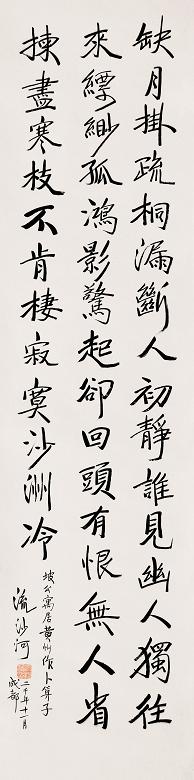 缺月掛疏桐漏斷人初靜誰見幽人獨往
來縹緲孤鴻影驚起卻回頭有恨無人省
揀盡寒枝不肯棲寂寞沙洲冷
坡公寓居黃州作卜算子
流沙河
二千年十一月
成都